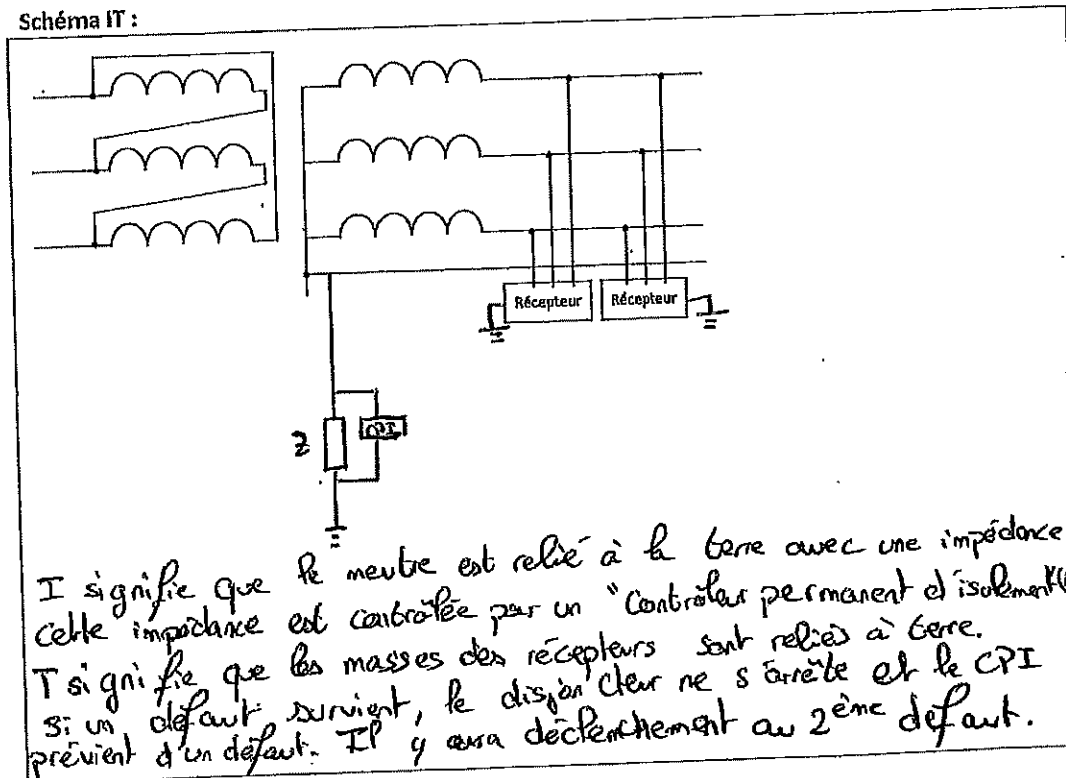 Schéma IT :
Récepteur
Récepteur
Z
CPI
I signifie que le neutre est relié à la terre avec une impédance
cette impédance est contrôlée par un "Contrôleur permanent d'isolement"(
T signifie que les masses des récepteurs sont reliés à terre.
Si un défaut survient, le disjoncteur ne s'arrête et le CPI
prévient d'un défaut. Il y aura déclenchement au 2ème défaut.